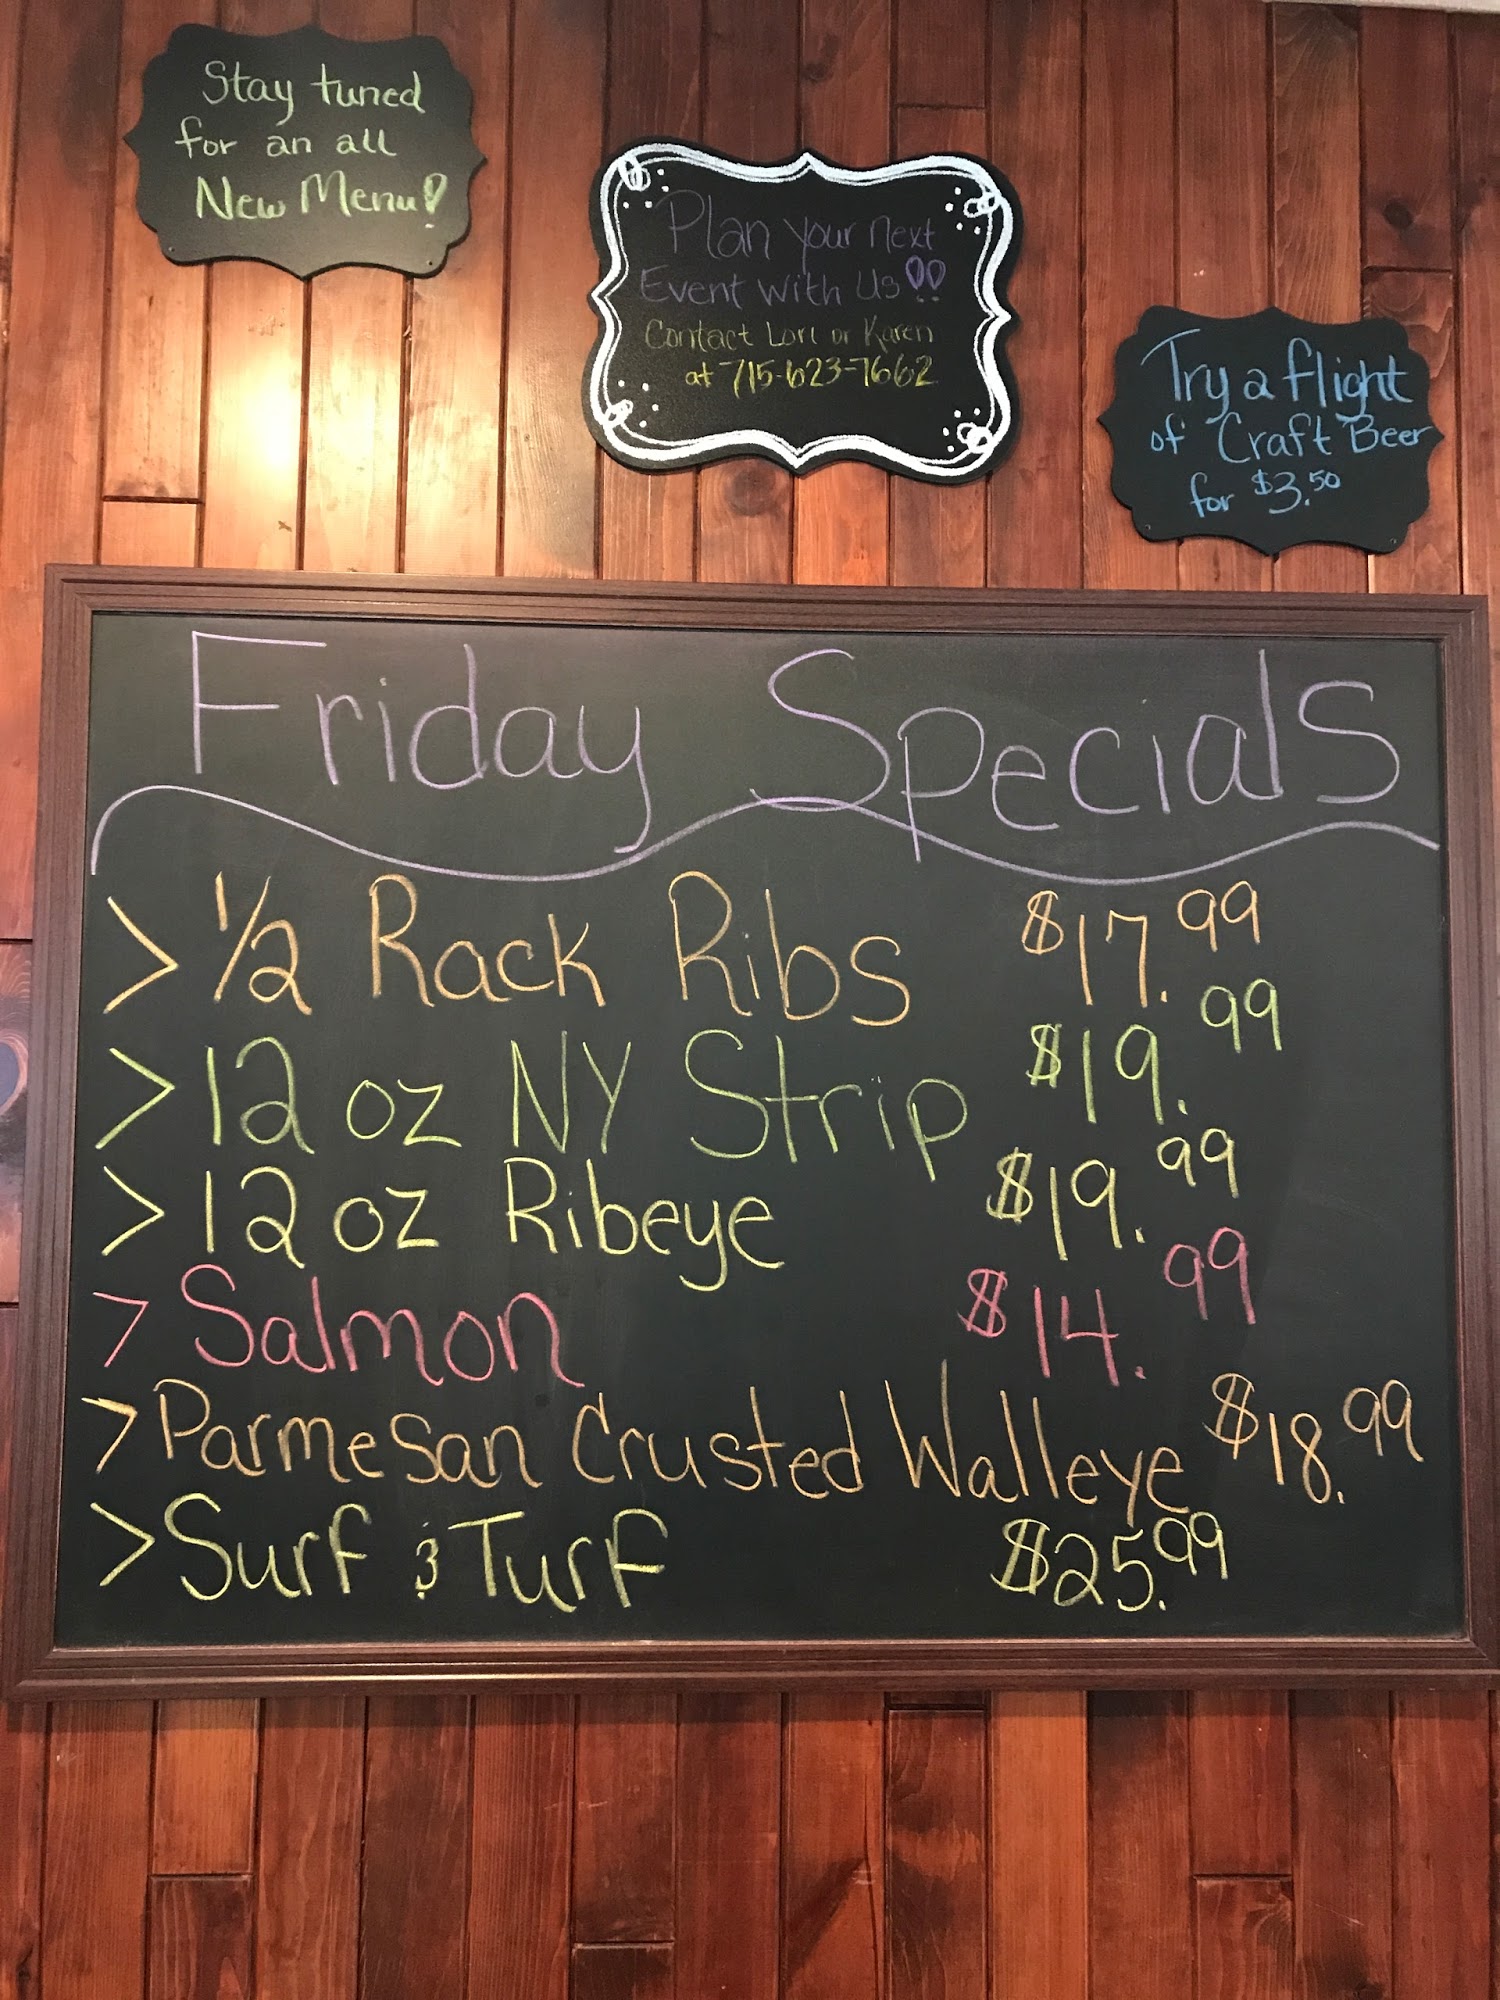 Stay tuned
for an all
New Menu!
Plan your next
Event with Us!!
Contact Lori or Karen
at 715-623-7662
Try a flight
of Craft Beer
for $3.50
Friday Specials
> 1/2 Rack Ribs $17.99
> 12 oz NY Strip $19.99
> 12 oz Ribeye $19.99
> Salmon $14.99
> Parmesan Crusted Walleye $18.99
> Surf & Turf $25.99